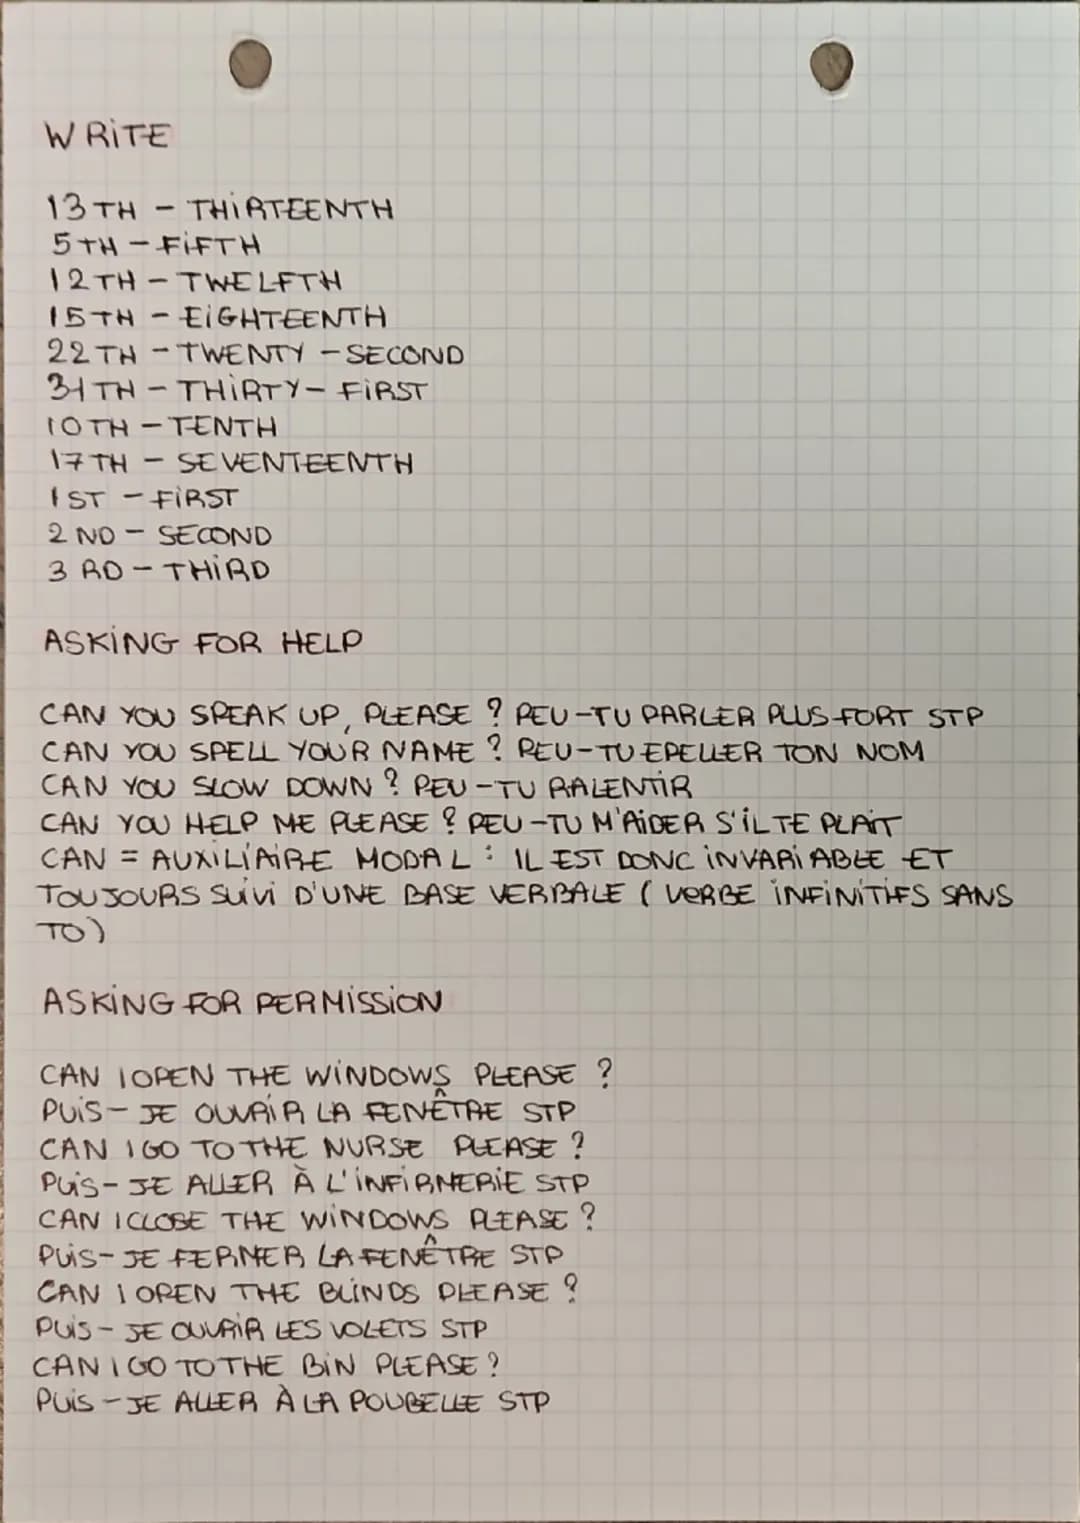 WRITE
13TH - THIRTEENTH
5TH - FIFTH
12TH - TWELFTH
15TH - EIGHTEENTH
22TH - TWENTY - SECOND
31TH - THIRTY - FIRST
10TH - TENTH
17TH - SEVENTEENTH
1ST - FIRST
2ND - SECOND
3RD - THIRD
ASKING FOR HELP
CAN YOU SPEAK UP, PLEASE ? PEU-TU PARLER PLUS FORT STP
CAN YOU SPELL YOUR NAME ? PEU-TU EPELLER TON NOM
CAN YOU SLOW DOWN ? PEU-TU RALENTIR
CAN YOU HELP ME PLEASE ? PEU-TU M'AIDER S'IL TE PLAÎT
CAN = AUXILIAIRE MODAL : IL EST DONC INVARIABLE ET
TOUJOURS SUIVI D'UNE BASE VERBALE ( VERBE INFINITIFS SANS
TO)
ASKING FOR PERMISSION
CAN I OPEN THE WINDOWS PLEASE ?
PUIS-JE OUVRIR LA FENÊTRE STP
CAN I GO TO THE NURSE PLEASE ?
PUIS-JE ALLER À L'INFIRMERIE STP
CAN I CLOSE THE WINDOWS PLEASE ?
PUIS-JE FERMER LA FENÊTRE STP
CAN I OPEN THE BLINDS PLEASE ?
PUIS-JE OUVRIR LES VOLETS STP
CAN I GO TO THE BIN PLEASE ?
PUIS-JE ALLER À LA POUBELLE STP